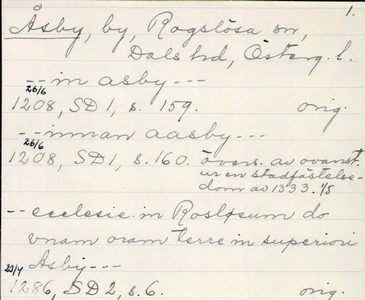 1.
Åsby, by, Rogslösa sn,
Dals hd, Österg. l.
--in asby---
26/6
1208, SD 1, s. 159. orig.
--innan aasby---
26/6
1208, SD 1, s. 160. övers. av ovanst.
ur en stadfästelse-
dom av 1333. 1/5
--ecclesie in Rosløsum do
vnam oram terre in superiori
Asby---
23/4
1286, SD 2, s. 6. orig.